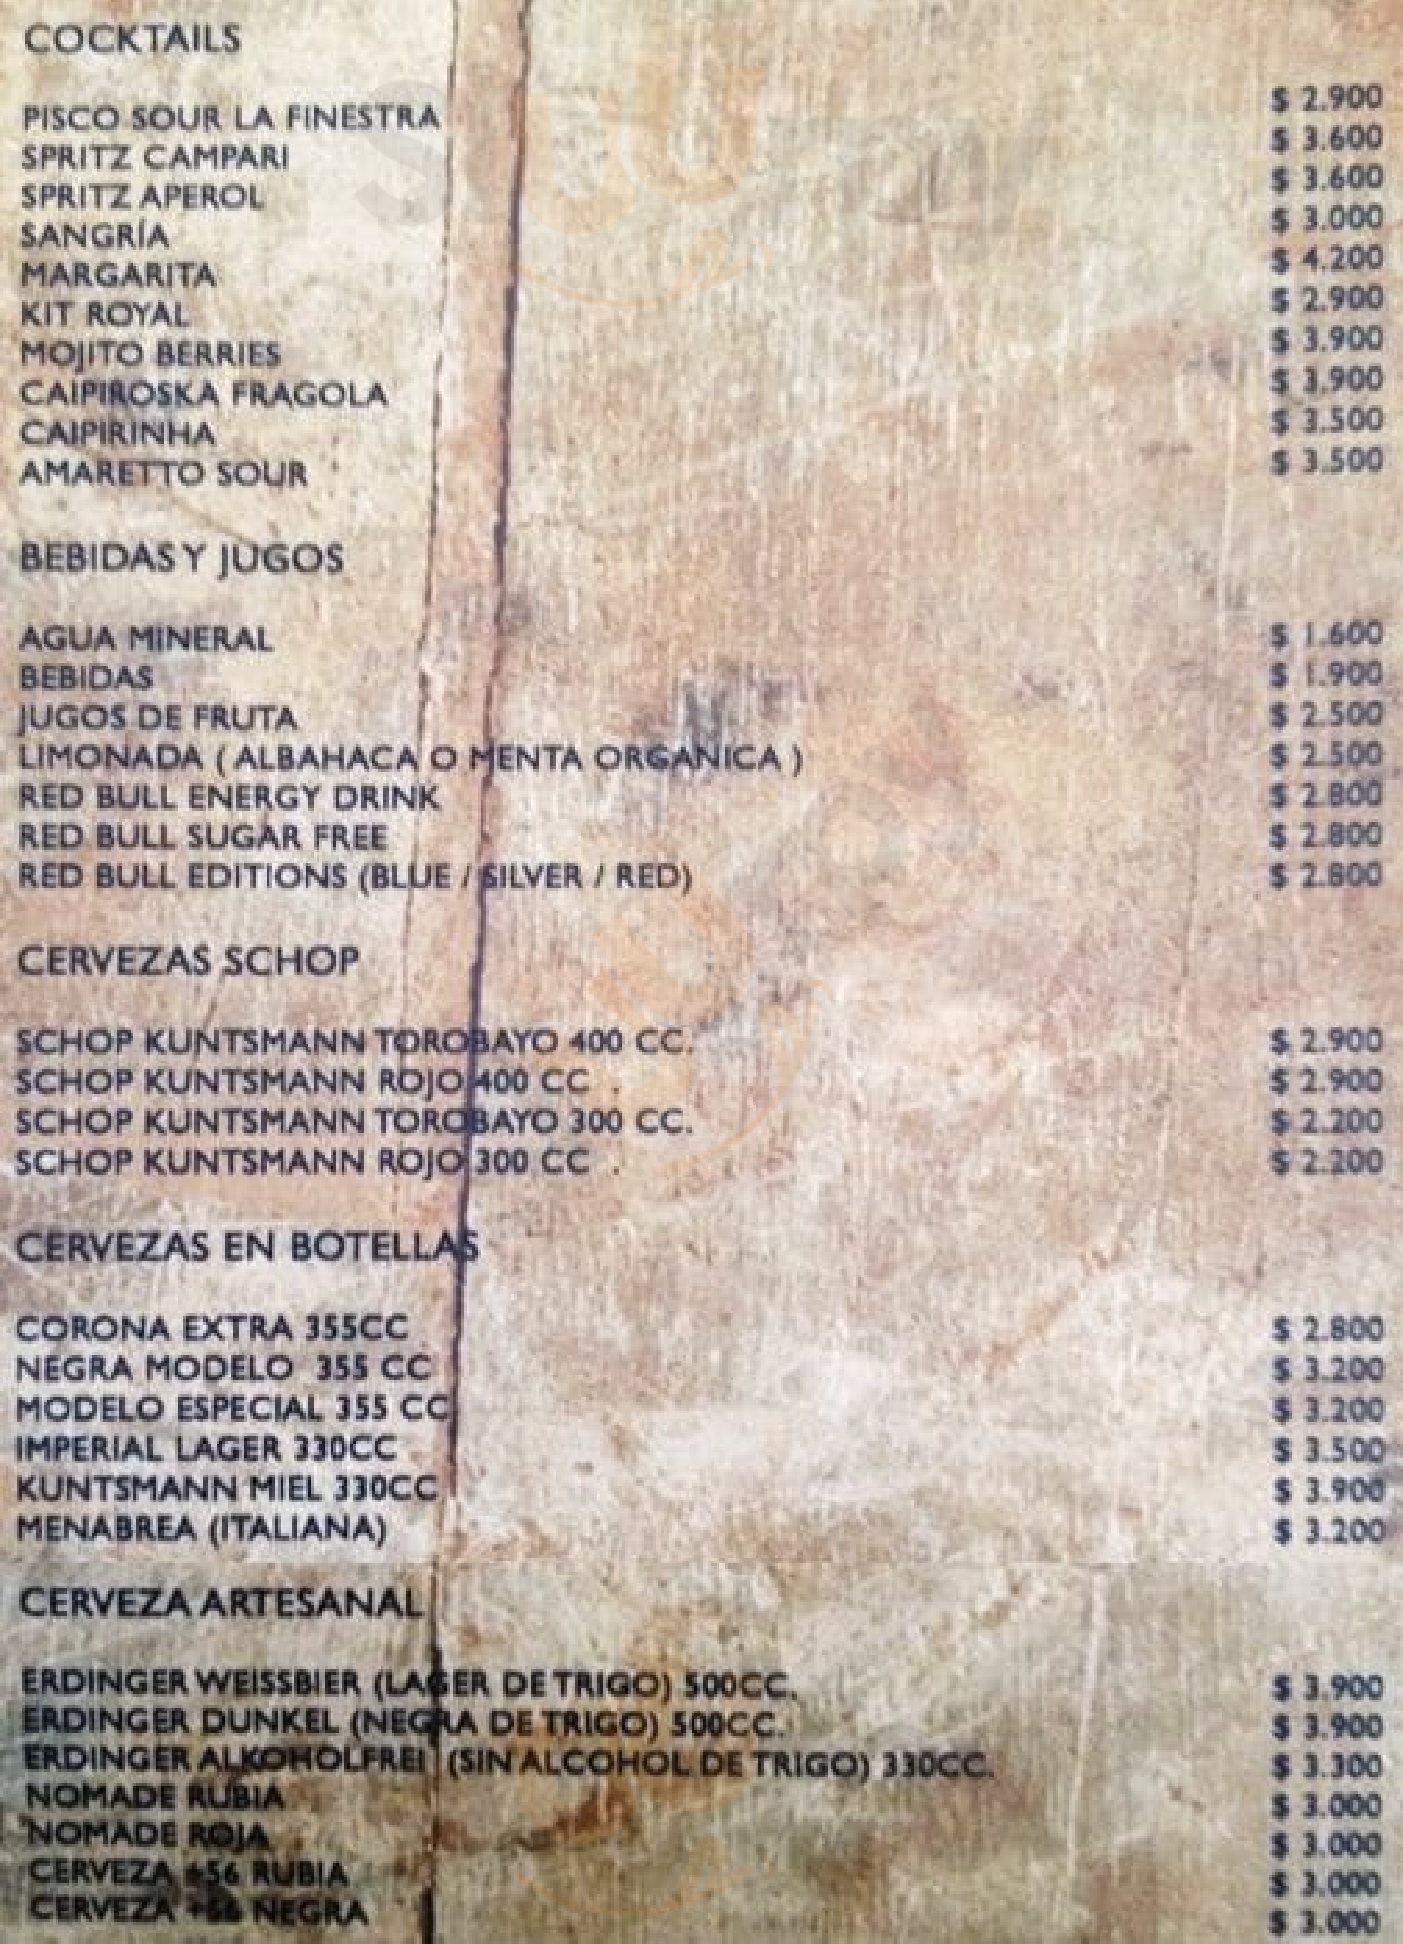 COCKTAILS
PISCO SOUR LA FINESTRA $ 2.900
SPRITZ CAMPARI $ 3.600
SPRITZ APEROL $ 3.600
SANGRÍA $ 3.000
MARGARITA $ 4.200
KIT ROYAL $ 2.900
MOJITO BERRIES $ 3.900
CAIPIROSKA FRAGOLA $ 3.900
CAIPIRINHA $ 3.500
AMARETTO SOUR $ 3.500
BEBIDAS Y JUGOS
AGUA MINERAL $ 1.600
BEBIDAS $ 1.900
JUGOS DE FRUTA $ 2.500
LIMONADA ( ALBAHACA O MENTA ORGANICA ) $ 2.500
RED BULL ENERGY DRINK $ 2.800
RED BULL SUGAR FREE $ 2.800
RED BULL EDITIONS (BLUE / SILVER / RED) $ 2.800
CERVEZAS SCHOP
SCHOP KUNTSMANN TOROBAYO 400 CC. $ 2.900
SCHOP KUNTSMANN ROJO 400 CC . $ 2.900
SCHOP KUNTSMANN TOROBAYO 300 CC. $ 2.200
SCHOP KUNTSMANN ROJO 300 CC . $ 2.200
CERVEZAS EN BOTELLAS
CORONA EXTRA 355CC $ 2.800
NEGRA MODELO 355 CC $ 3.200
MODELO ESPECIAL 355 CC $ 3.200
IMPERIAL LAGER 330CC $ 3.500
KUNTSMANN MIEL 330CC $ 3.900
MENABREA (ITALIANA) $ 3.200
CERVEZA ARTESANAL
ERDINGER WEISSBIER (LAGER DE TRIGO) 500CC. $ 3.900
ERDINGER DUNKEL (NEGRA DE TRIGO) 500CC. $ 3.900
ERDINGER ALKOHOLFREI (SIN ALCOHOL DE TRIGO) 330CC. $ 3.300
NOMADE RUBIA $ 3.000
NOMADE ROJA $ 3.000
CERVEZA +56 RUBIA $ 3.000
CERVEZA +56 NEGRA $ 3.000